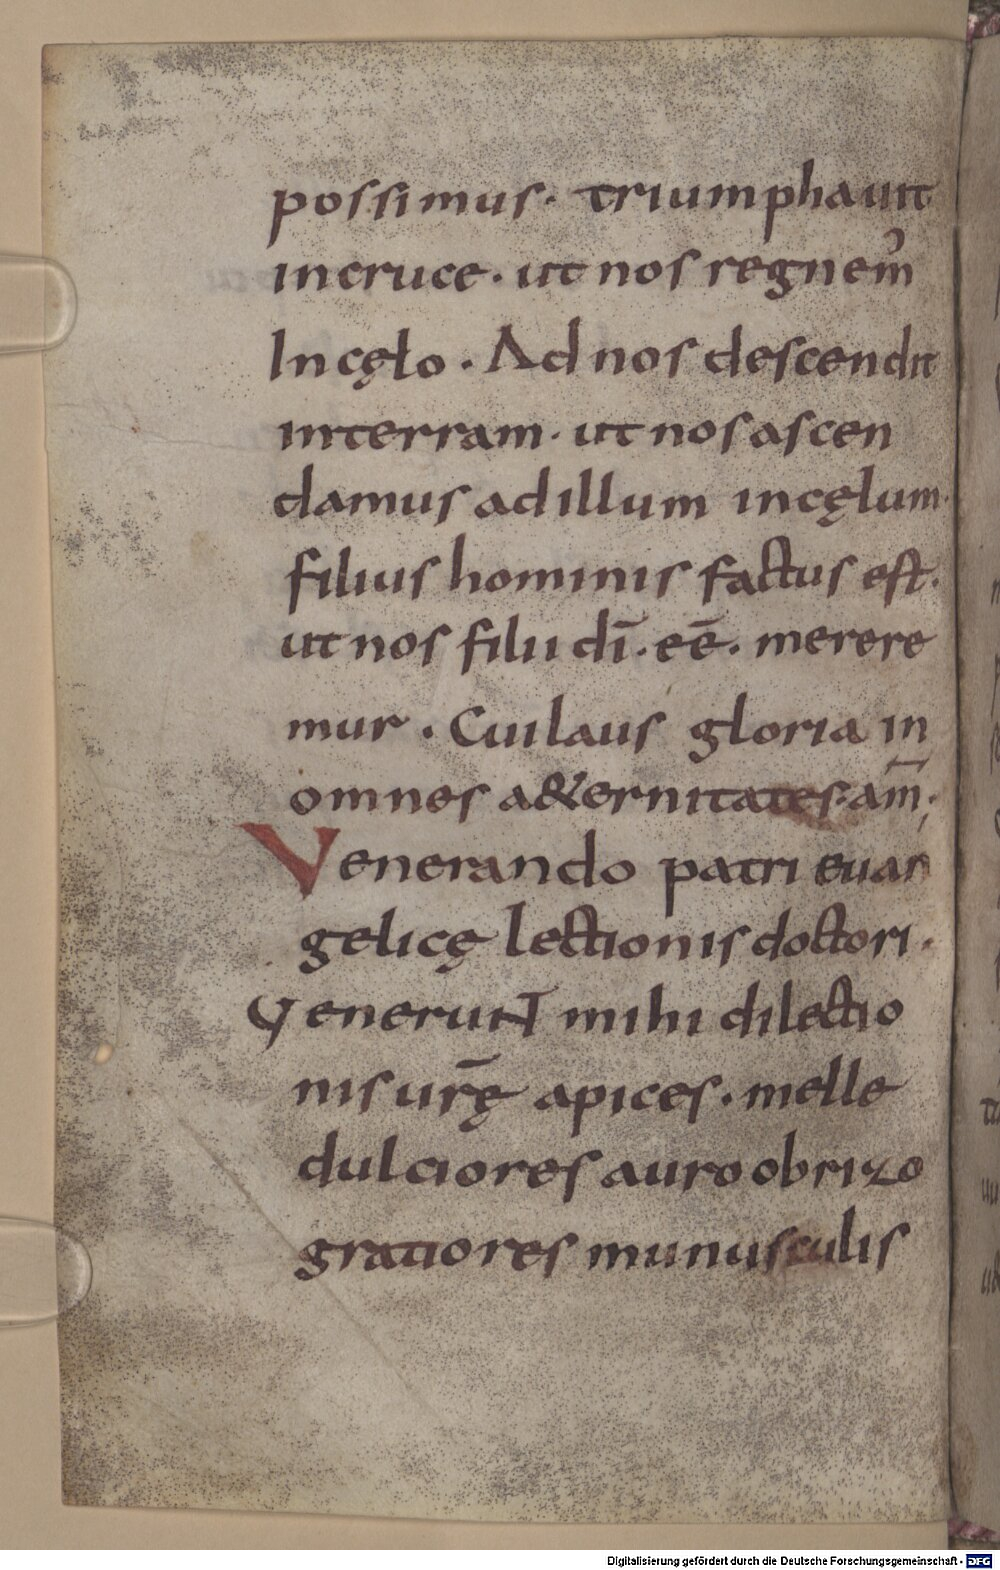 possimus. triumphauit
incruce. ut nos regnem᾿
Incęlo. Ad nos descendit
interram. ut nos ascen
damus adillum incęlum.
filius hominis factus est.
ut nos filii dī. eē. merere
mur. Cuilaus gloria in
omnes a&ernitates. am̄;
Venerando patri euan
gelicę lectionis doctori.
Venerunt mihi dilectio
nis ur̄ę apices. melle
dulciores auro obrizo
gratiores munusculis
Digitalisierung gefördert durch die Deutsche Forschungsgemeinschaft - DFG